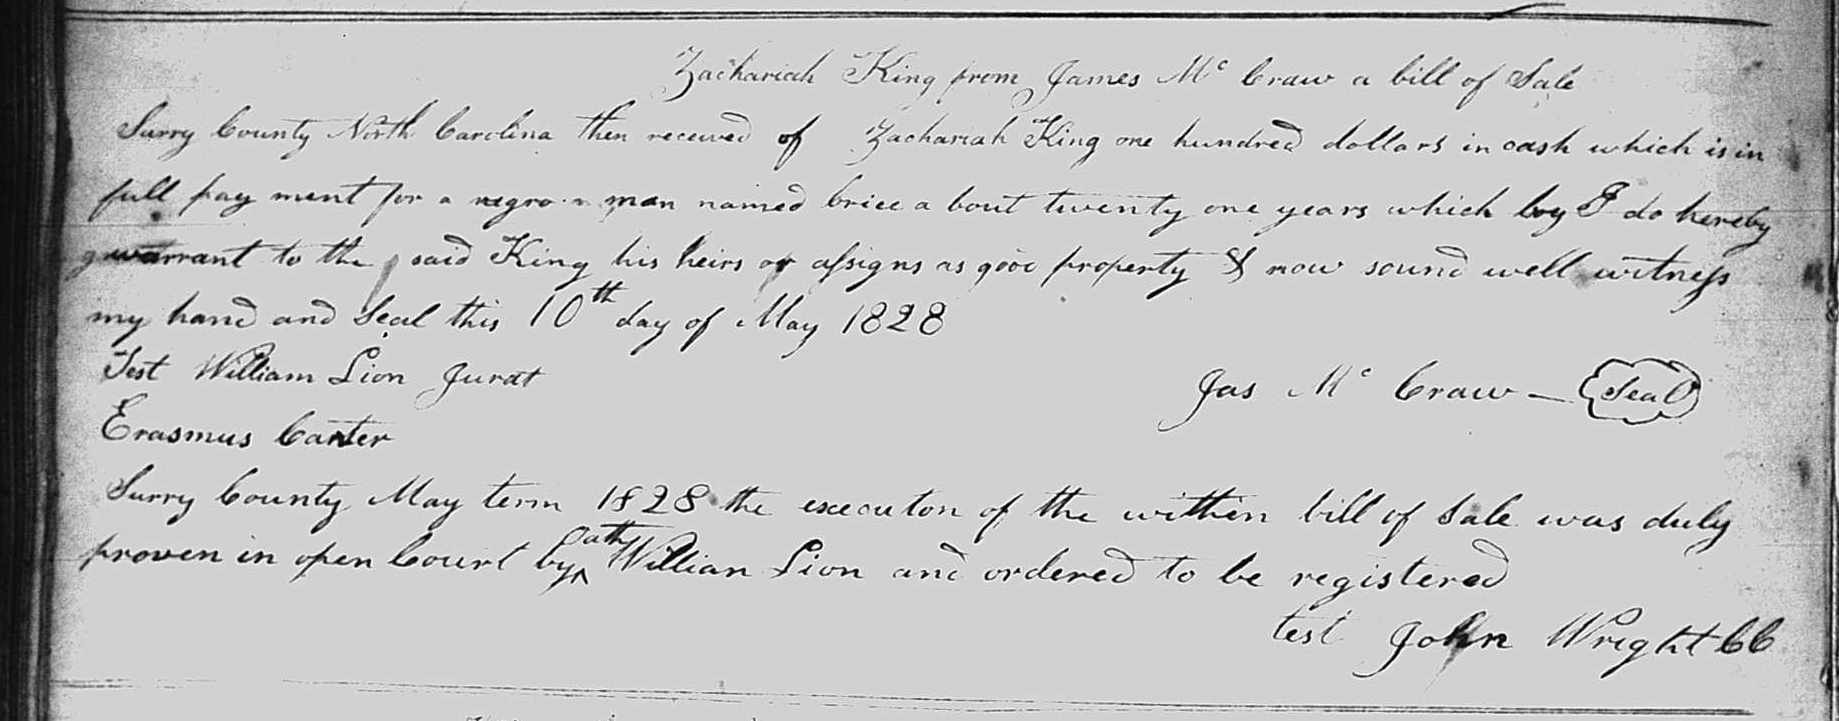 Zachariah King from James Mc Craw a bill of Sale
Surry County North Carolina then received of Zachariah King one hundred dollars in cash which is in
full pay ment for a negro man named brice a bout twenty one years which boy I do hereby
warrant to the said King his heirs or assigns as good property & now sound well witness
my hand and Seal this 10th day of May 1828
Test William Lion Jurat
Jas Mc Craw — Seal
Erasmus Carter
Surry County May term 1828 the executon of the within bill of Sale was duly
proven in open Court by ^ oath Willian Lion and ordered to be registered
test John Wright CC